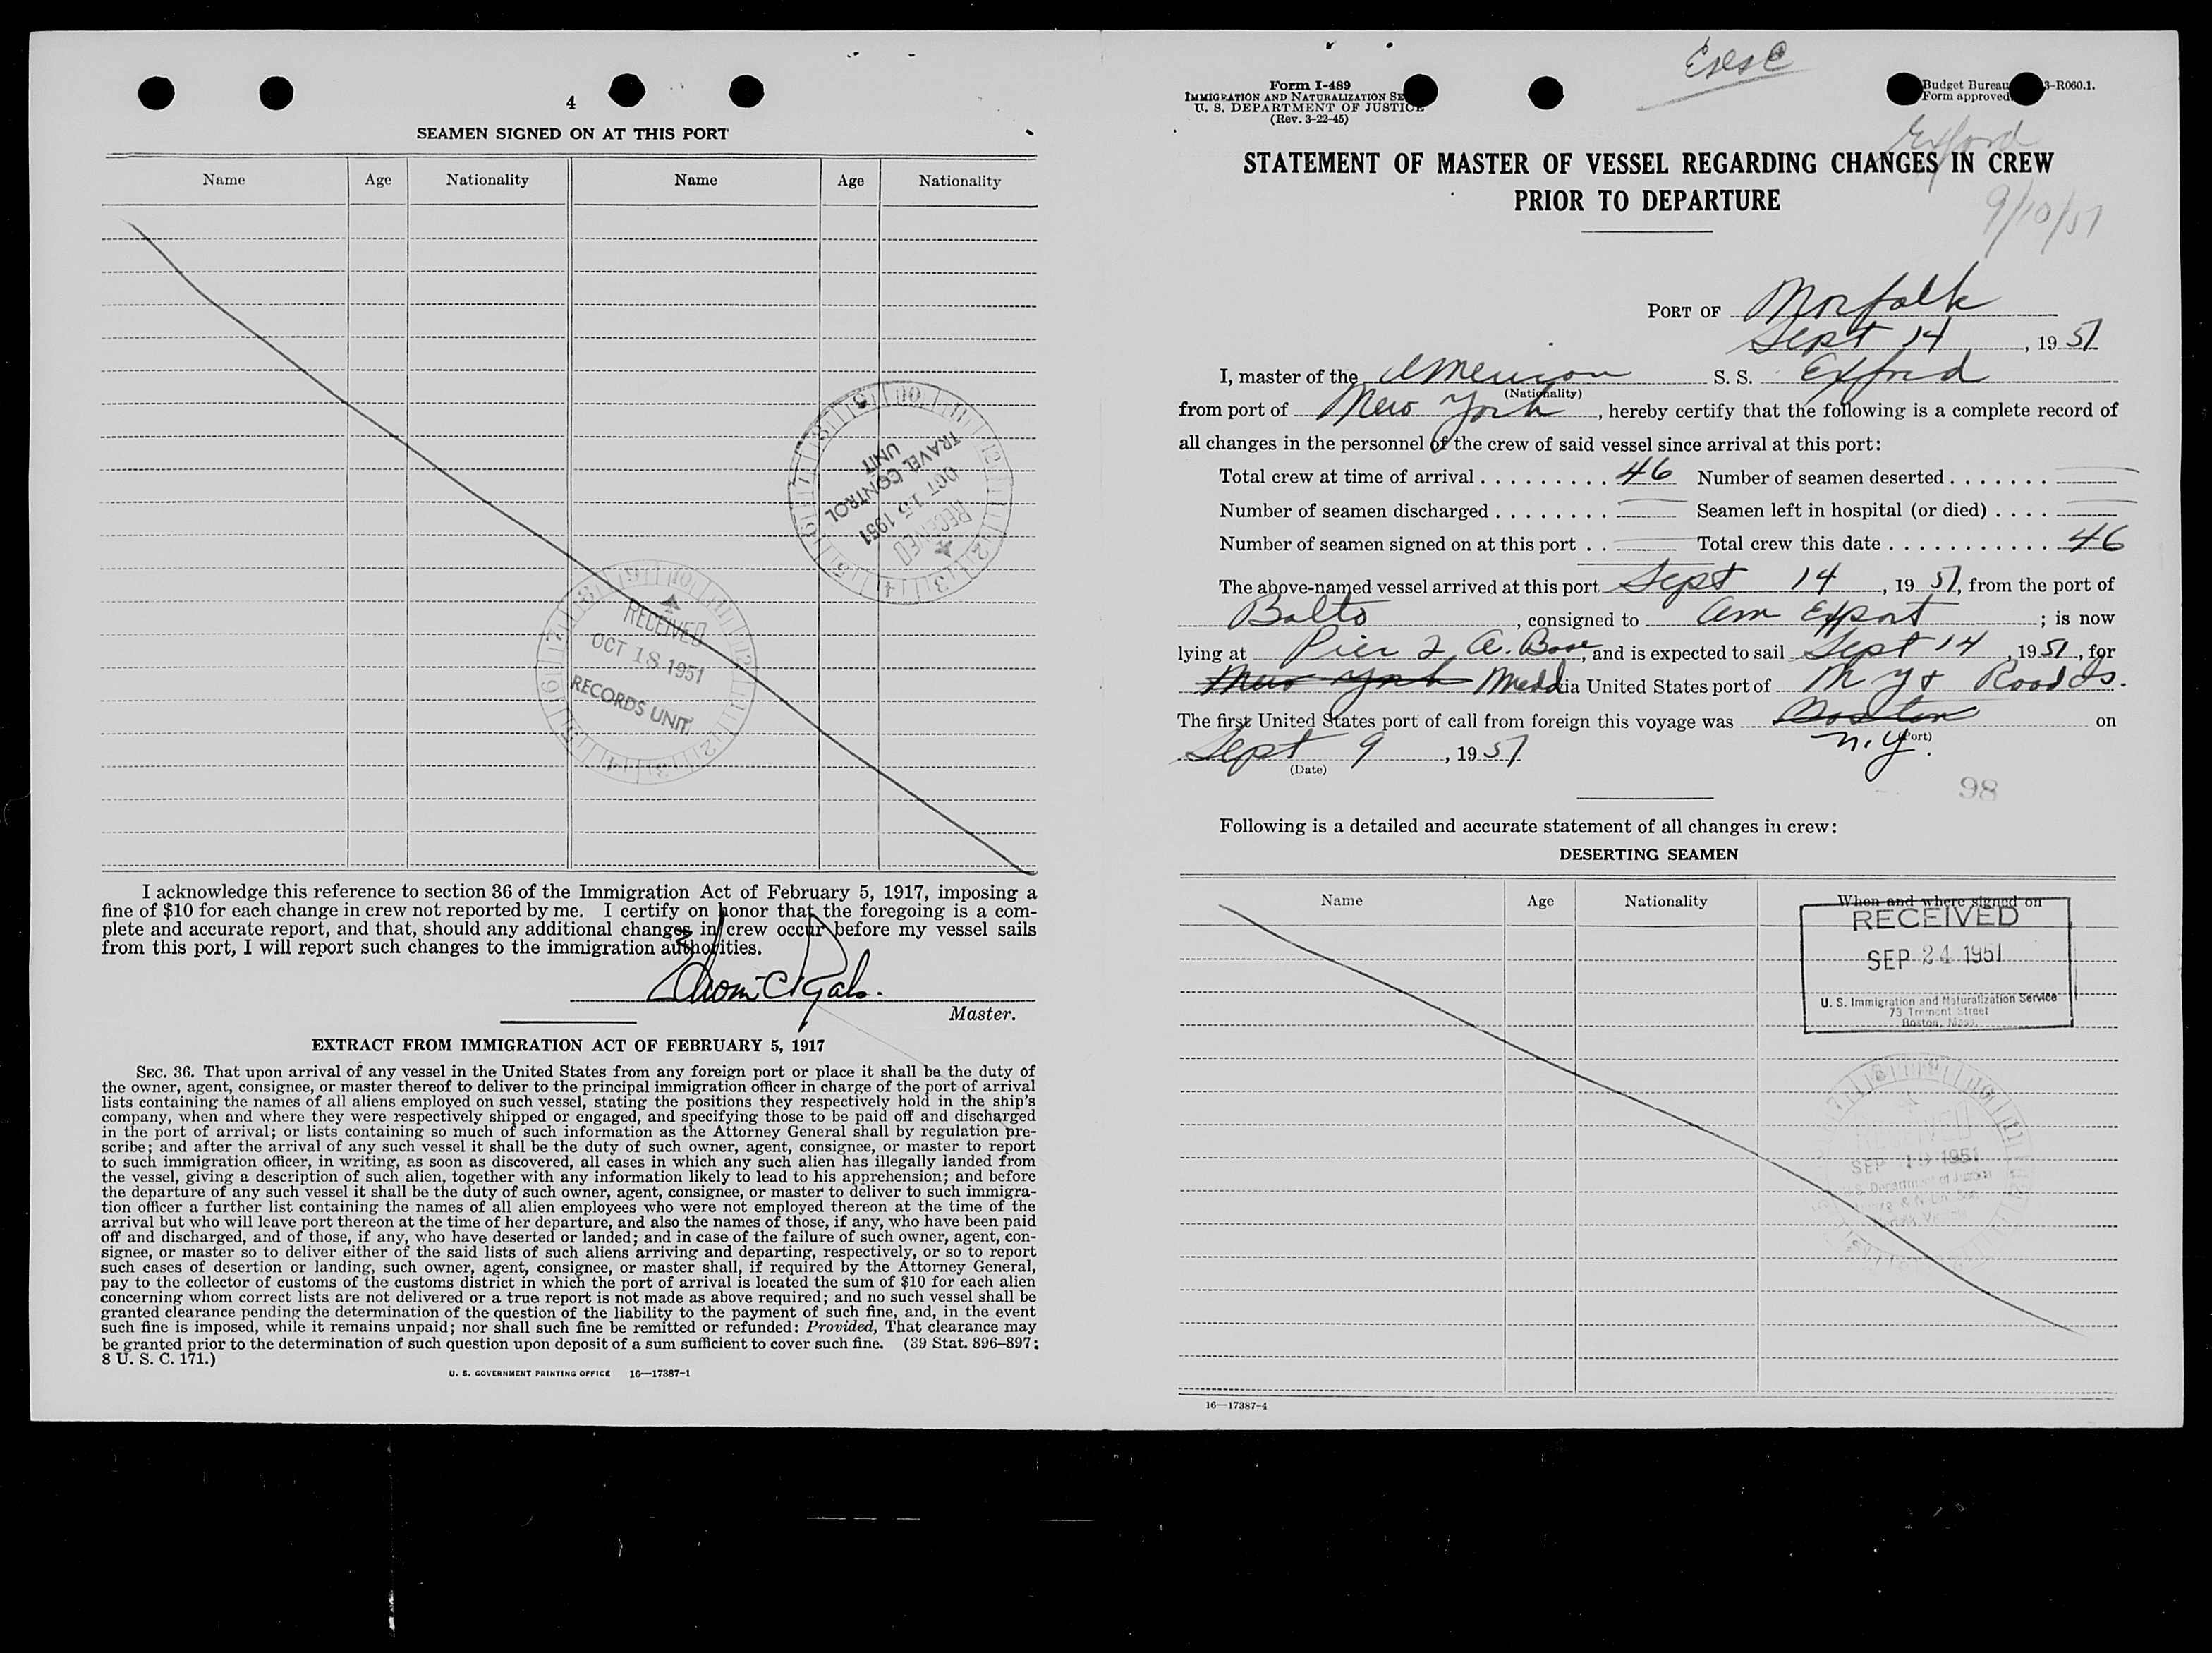 4
SEAMEN SIGNED ON AT THIS PORT
Name Age Nationality Name Age Nationality
TRAVEL CONTROL UNIT
OCT 15 1951
RECEIVED
RECEIVED
OCT 18 1951
RECORDS UNIT
I acknowledge this reference to section 36 of the Immigration Act of February 5, 1917, imposing a
fine of $10 for each change in crew not reported by me. I certify on honor that the foregoing is a com-
plete and accurate report, and that, should any additional changes in crew occur before my vessel sails
from this port, I will report such changes to the immigration authorities.
Master.
EXTRACT FROM IMMIGRATION ACT OF FEBRUARY 5, 1917
SEC. 36. That upon arrival of any vessel in the United States from any foreign port or place it shall be the duty of
the owner, agent, consignee, or master thereof to deliver to the principal immigration officer in charge of the port of arrival
lists containing the names of all aliens employed on such vessel, stating the positions they respectively hold in the ship's
company, when and where they were respectively shipped or engaged, and specifying those to be paid off and discharged
in the port of arrival; or lists containing so much of such information as the Attorney General shall by regulation pre-
scribe; and after the arrival of any such vessel it shall be the duty of such owner, agent, consignee, or master to report
to such immigration officer, in writing, as soon as discovered, all cases in which any such alien has illegally landed from
the vessel, giving a description of such alien, together with any information likely to lead to his apprehension; and before
the departure of any such vessel it shall be the duty of such owner, agent, consignee, or master to deliver to such immigra-
tion officer a further list containing the names of all alien employees who were not employed thereon at the time of the
arrival but who will leave port thereon at the time of her departure, and also the names of those, if any, who have been paid
off and discharged, and of those, if any, who have deserted or landed; and in case of the failure of such owner, agent, con-
signee, or master so to deliver either of the said lists of such aliens arriving and departing, respectively, or so to report
such cases of desertion or landing, such owner, agent, consignee, or master shall, if required by the Attorney General,
pay to the collector of customs of the customs district in which the port of arrival is located the sum of $10 for each alien
concerning whom correct lists are not delivered or a true report is not made as above required; and no such vessel shall be
granted clearance pending the determination of the question of the liability to the payment of such fine, and, in the event
such fine is imposed, while it remains unpaid; nor shall such fine be remitted or refunded: Provided, That clearance may
be granted prior to the determination of such question upon deposit of a sum sufficient to cover such fine. (39 Stat. 896–897;
8 U. S. C. 171.)
U. S. GOVERNMENT PRINTING OFFICE 16—17387-1
Form I-489
IMMIGRATION AND NATURALIZATION SE
U. S. DEPARTMENT OF JUSTICE
(Rev. 3-22-45)
Budget Bureau 3-R060.1.
Form approved
Exford
STATEMENT OF MASTER OF VESSEL REGARDING CHANGES IN CREW
PRIOR TO DEPARTURE
9/10/51
PORT OF Norfolk
Sept 14, 1951
I, master of the American S. S. Exford
(Nationality)
from port of New York, hereby certify that the following is a complete record of
all changes in the personnel of the crew of said vessel since arrival at this port:
Total crew at time of arrival . . . . . . . . . 46 Number of seamen deserted . . . . . . .
Number of seamen discharged . . . . . . . . Seamen left in hospital (or died) . . . .
Number of seamen signed on at this port . . Total crew this date . . . . . . . . . . . . 46
The above-named vessel arrived at this port Sept 14, 1951, from the port of
Balto, consigned to Am Export; is now
lying at Pier 2 A. Base, and is expected to sail Sept 14, 1951, for
New York Medd via United States port of N Y & Roads.
The first United States port of call from foreign this voyage was Boston on
(Port)
N.Y.
Sept 9, 1951
(Date)
98
Following is a detailed and accurate statement of all changes in crew:
DESERTING SEAMEN
Name Age Nationality When and where signed on
RECEIVED
SEP 24 1951
U. S. Immigration and Naturalization Service
73 Tremont Street
Boston, Mass.
RECEIVED
SEP 19 1951
U.S. Department of Justice
16—17387-4